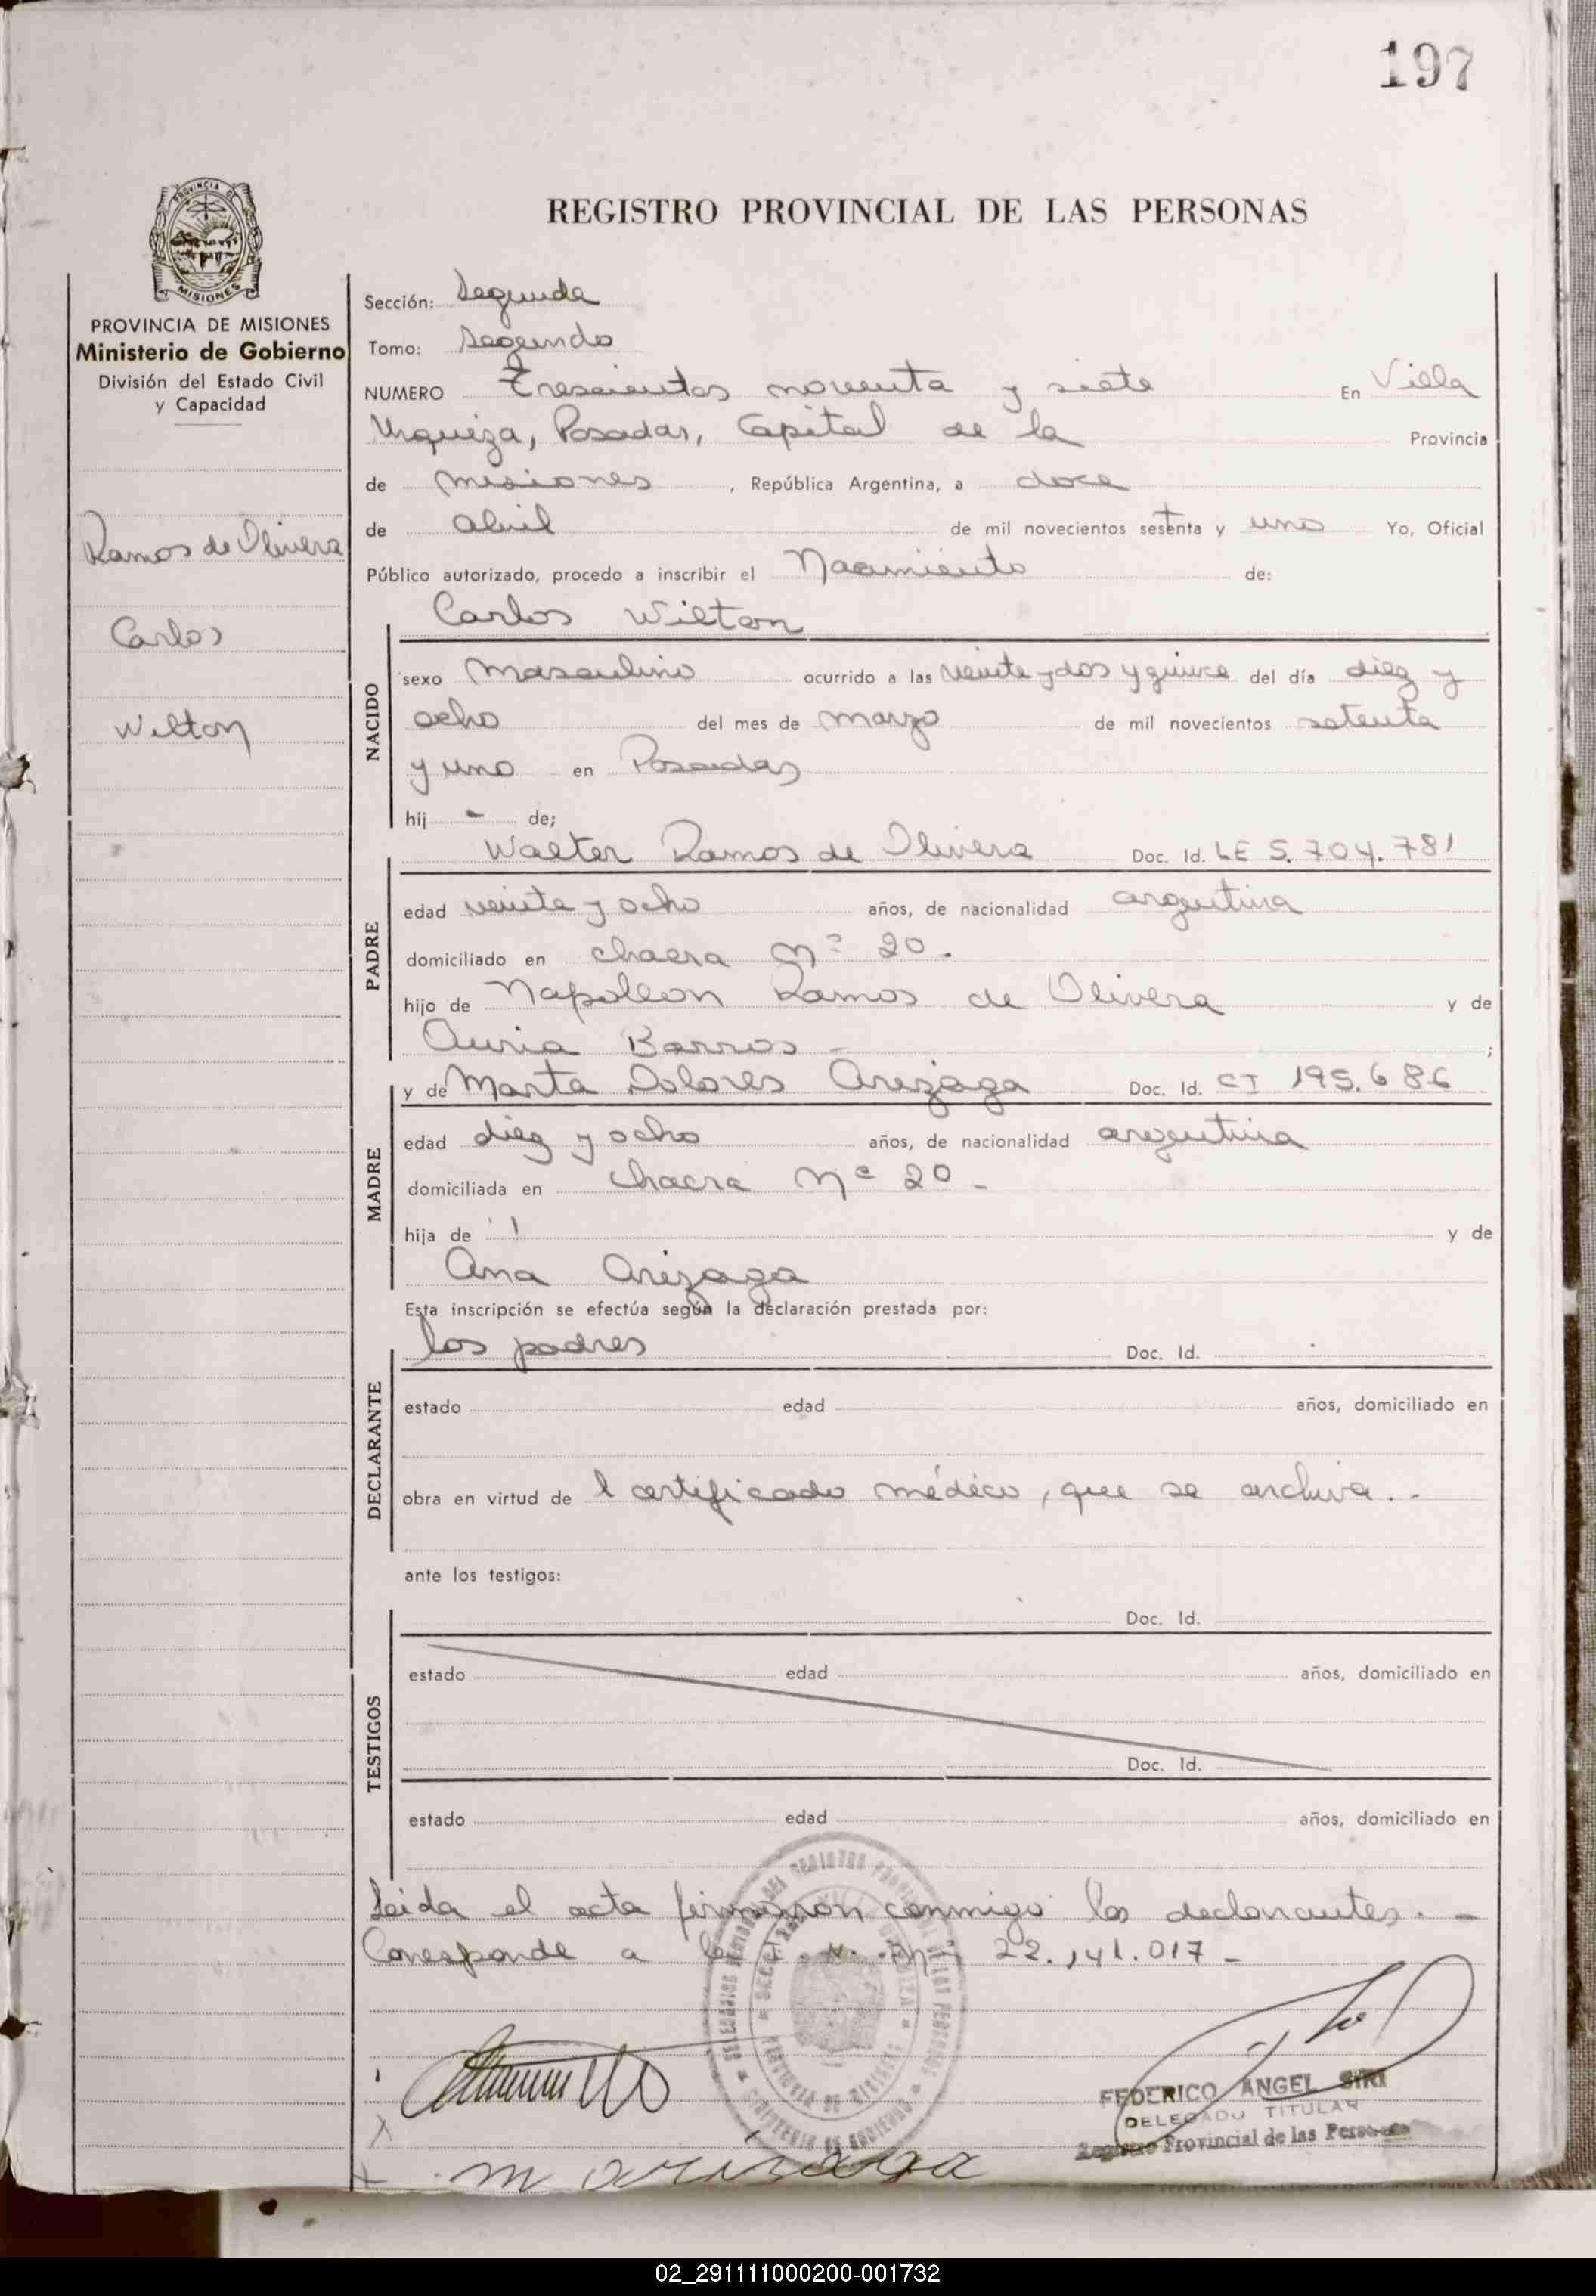 197
REGISTRO PROVINCIAL DE LAS PERSONAS
PROVINCIA DE
MISIONES
PROVINCIA DE MISIONES
Ministerio de Gobierno
División del Estado Civil
y Capacidad
Ramos de Olivera
Carlos
Wilton
Sección: Segunda
Tomo: Segundo
NUMERO Trescientos noventa y siete En Villa
Urquiza, Posadas, Capital de la Provincia
de misiones, República Argentina, a doce
de abril de mil novecientos setenta y uno Yo, Oficial
Público autorizado, procedo a inscribir el Nacimiento de:
Carlos Wilton
NACIDO
sexo masculino ocurrido a las veinte y dos y quince del día diez y
ocho del mes de marzo de mil novecientos setenta
y uno en Posadas
hij - de;
PADRE
Walter Ramos de Olivera Doc. Id. LE 5.704.781
edad veinte y ocho años, de nacionalidad argentina
domiciliado en chacra nº 20.
hijo de Napoleon Ramos de Olivera y de
Auria Barros - ;
MADRE
y de Marta Dolores Arizaga Doc. Id. CI 195.686
edad diez y ocho años, de nacionalidad argentina
domiciliada en chacra nº 20 -
hija de y de
Ana Arizaga
Esta inscripción se efectúa según la declaración prestada por:
DECLARANTE
los padres Doc. Id.
estado edad años, domiciliado en
obra en virtud de l certificado médico, que se archiva. -
ante los testigos:
TESTIGOS
Doc. Id.
estado edad años, domiciliado en
Doc. Id.
estado edad años, domiciliado en
Leida el acta firmaron conmigo los declarantes. -
Corresponde a la 22.141.017 -
FEDERICO ANGEL SIRI
DELEGADO TITULAR
Registro Provincial de las Personas
m arizaga
02_291111000200-001732